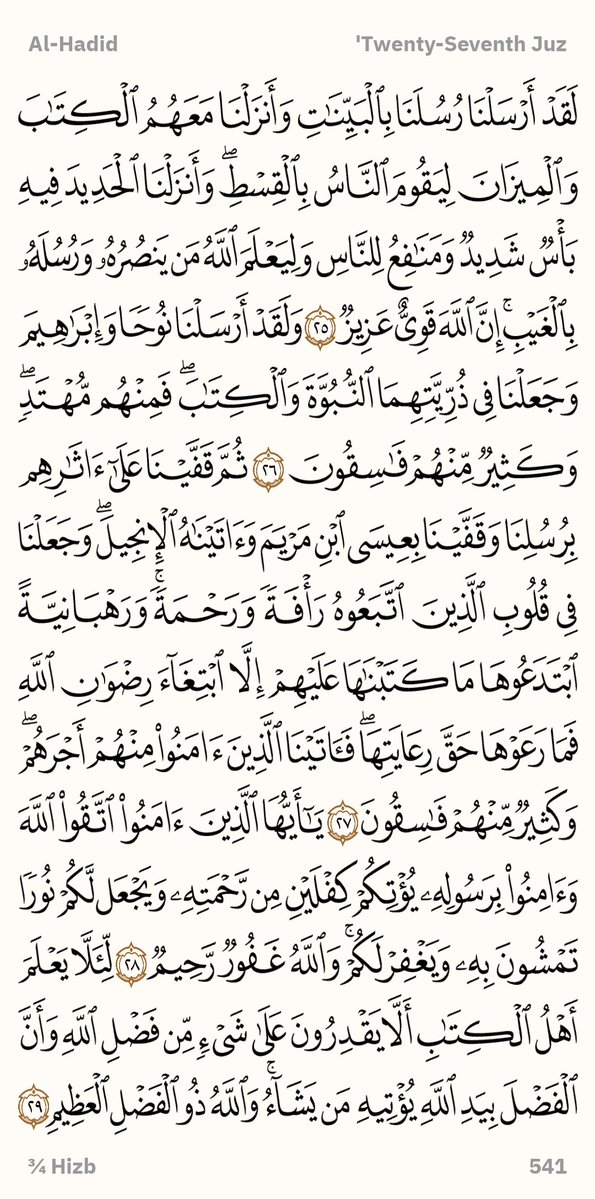 Al-Hadid
'Twenty-Seventh Juz
لَقَدْ أَرْسَلْنَا رُسُلَنَا بِٱلْبَيِّنَٰتِ وَأَنزَلْنَا مَعَهُمُ ٱلْكِتَٰبَ
وَٱلْمِيزَانَ لِيَقُومَ ٱلنَّاسُ بِٱلْقِسْطِۖ وَأَنزَلْنَا ٱلْحَدِيدَ فِيهِ
بَأْسٌ شَدِيدٌ وَمَنَٰفِعُ لِلنَّاسِ وَلِيَعْلَمَ ٱللَّهُ مَن يَنصُرُهُۥ وَرُسُلَهُۥ
بِٱلْغَيْبِۚ إِنَّ ٱللَّهَ قَوِىٌّ عَزِيزٌ ٢٥ وَلَقَدْ أَرْسَلْنَا نُوحًا وَإِبْرَٰهِيمَ
وَجَعَلْنَا فِى ذُرِّيَّتِهِمَا ٱلنُّبُوَّةَ وَٱلْكِتَٰبَۖ فَمِنْهُم مُّهْتَدٍۖ
وَكَثِيرٌ مِّنْهُمْ فَٰسِقُونَ ٢٦ ثُمَّ قَفَّيْنَا عَلَىٰٓ ءَاثَٰرِهِم
بِرُسُلِنَا وَقَفَّيْنَا بِعِيسَى ٱبْنِ مَرْيَمَ وَءَاتَيْنَٰهُ ٱلْإِنجِيلَۖ وَجَعَلْنَا
فِى قُلُوبِ ٱلَّذِينَ ٱتَّبَعُوهُ رَأْفَةً وَرَحْمَةًۚ وَرَهْبَانِيَّةً
ٱبْتَدَعُوهَا مَا كَتَبْنَٰهَا عَلَيْهِمْ إِلَّا ٱبْتِغَآءَ رِضْوَٰنِ ٱللَّهِ
فَمَا رَعَوْهَا حَقَّ رِعَايَتِهَاۖ فَـَٔاتَيْنَا ٱلَّذِينَ ءَامَنُوا۟ مِنْهُمْ أَجْرَهُمْۖ
وَكَثِيرٌ مِّنْهُمْ فَٰسِقُونَ ٢٧ يَٰٓأَيُّهَا ٱلَّذِينَ ءَامَنُوا۟ ٱتَّقُوا۟ ٱللَّهَ
وَءَامِنُوا۟ بِرَسُولِهِۦ يُؤْتِكُمْ كِفْلَيْنِ مِن رَّحْمَتِهِۦ وَيَجْعَل لَّكُمْ نُورًا
تَمْشُونَ بِهِۦ وَيَغْفِرْ لَكُمْۚ وَٱللَّهُ غَفُورٌ رَّحِيمٌ ٢٨ لِّئَلَّا يَعْلَمَ
أَهْلُ ٱلْكِتَٰبِ أَلَّا يَقْدِرُونَ عَلَىٰ شَىْءٍ مِّن فَضْلِ ٱللَّهِ وَأَنَّ
ٱلْفَضْلَ بِيَدِ ٱللَّهِ يُؤْتِيهِ مَن يَشَآءُۚ وَٱللَّهُ ذُو ٱلْفَضْلِ ٱلْعَظِيمِ ٢٩
¾ Hizb
541